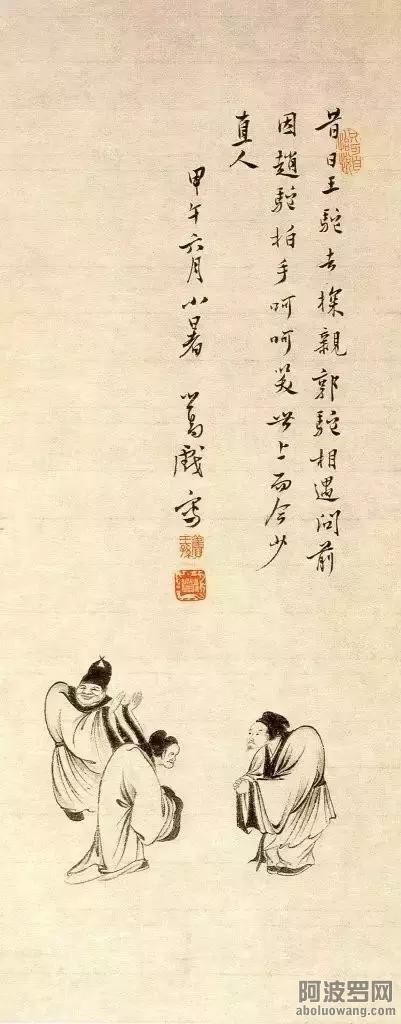 昔日王駝去探親郭駝相遇問前
因趙駝拍手呵呵笑世上而今少
直人
甲午六月小暑 心畬戲寫
阿波罗网
aboluowang.com